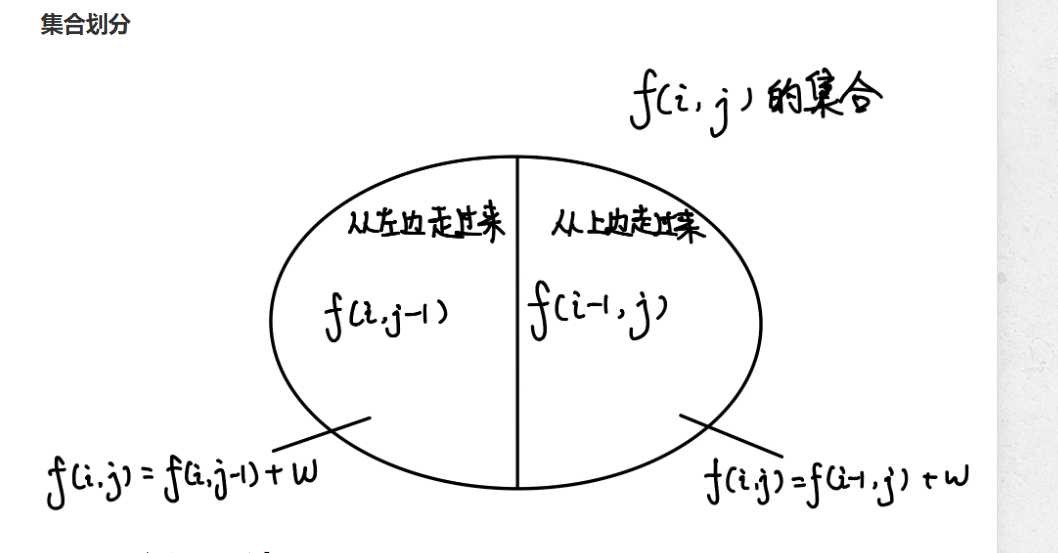 集合划分
f(i,j)的集合
从左边走过来
从上边走过来
f(i,j-1)
f(i-1,j)
f(i,j)=f(i,j-1)+w
f(i,j)=f(i-1,j)+w